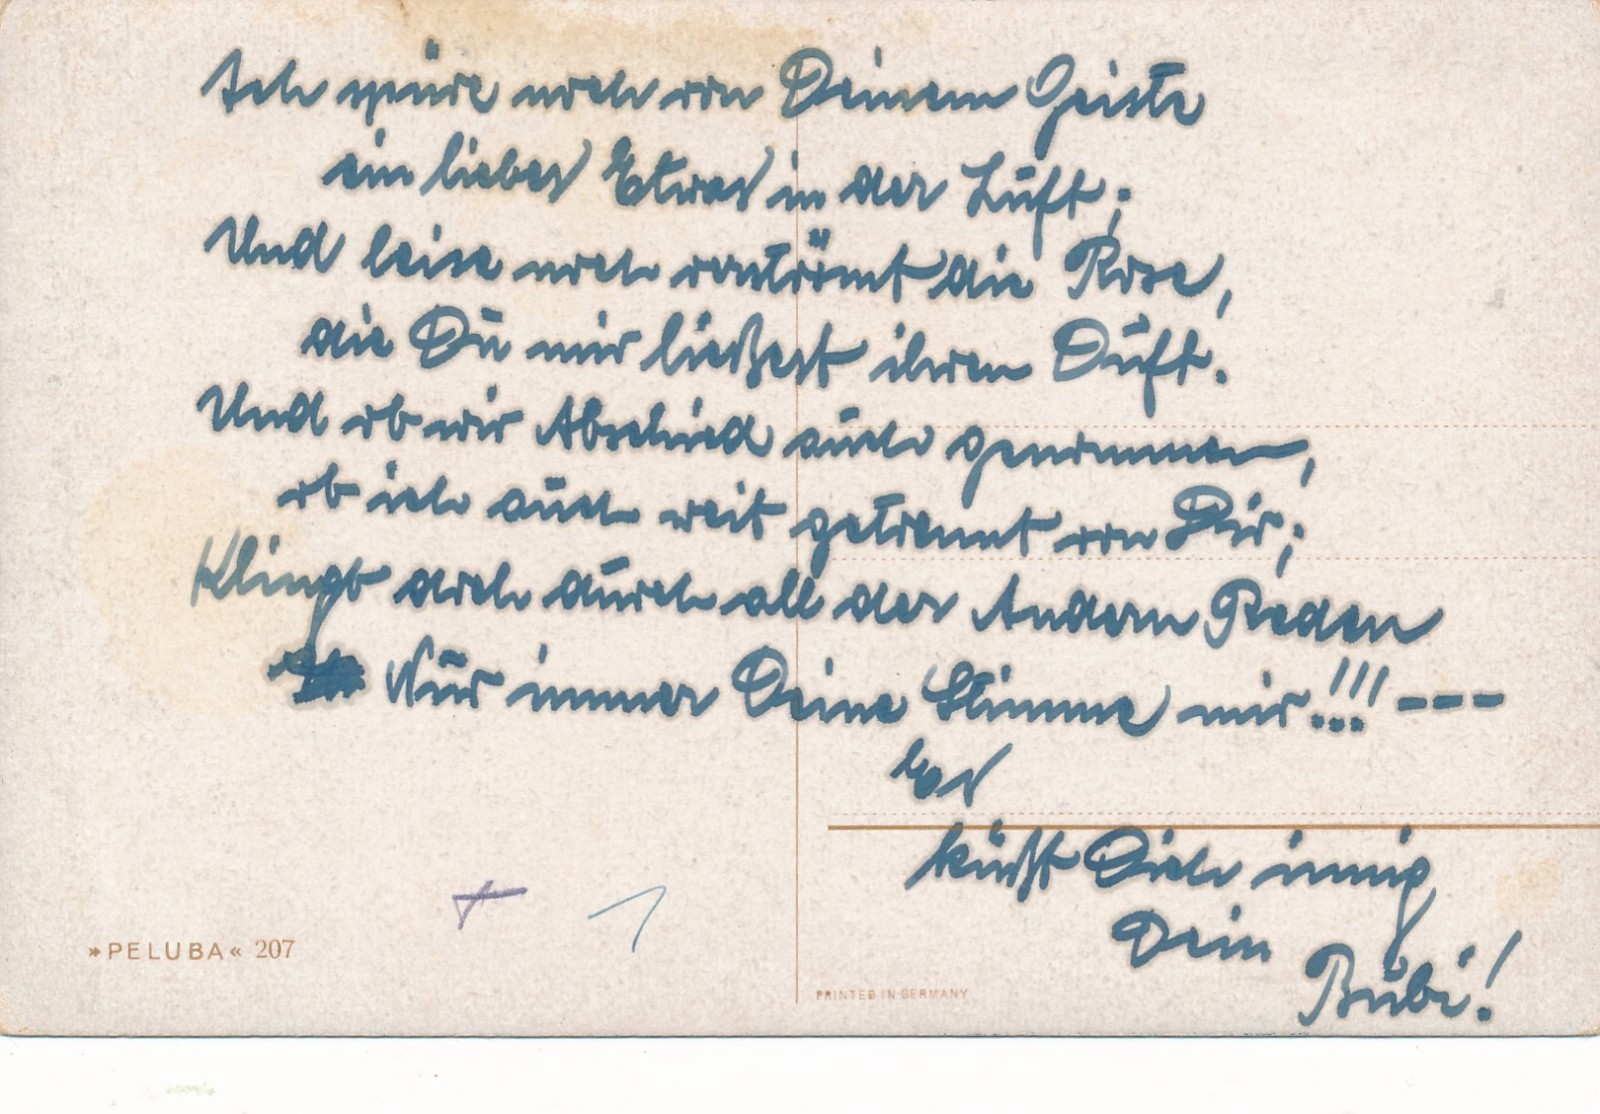 Ich spüre noch von Deinem Geiste
ein liebes Etwas in der Luft;
Und leise noch verströmt die Rose,
die Du mir ließest ihren Duft.
Und ob wir Abschied auch genommen,
ob ich auch weit getrennt von Dir;
Klingt doch durch all der Andern Reden
Nur immer Deine Stimme mir!!! ---
Es
küßt Dich innig
Dein
Bubi!
»PELUBA« 207
PRINTED IN GERMANY